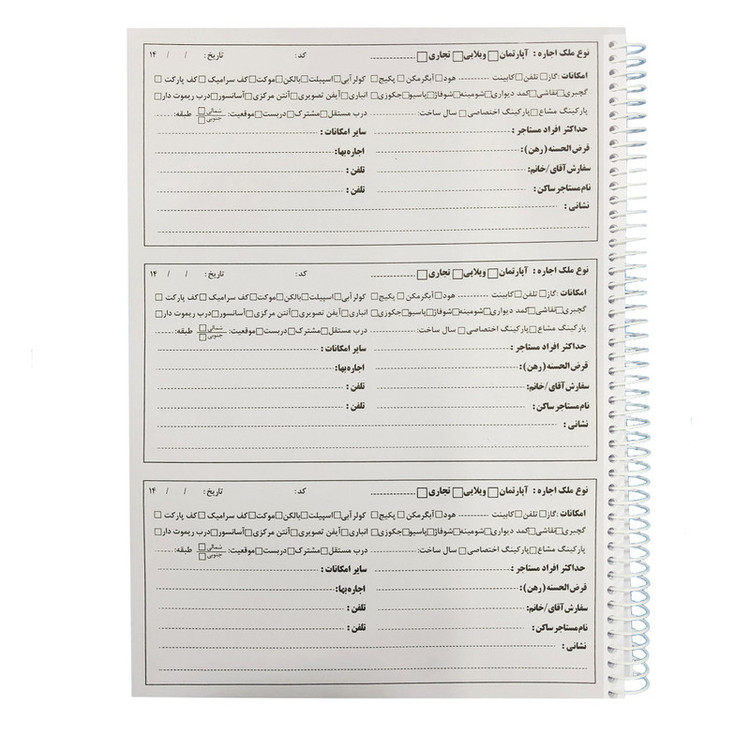 نوع ملک اجاره : آپارتمان□ ویلایی□ تجاری□ ............ کد: تاریخ: / / ۱۴
امکانات :گاز□ تلفن□ کابینت ............ هود□ آبگرمکن □ پکیج□ کولرآبی□ اسپیلت□ بالکن□ موکت□ کف سرامیک □ کف پارکت □
گچبری□ نقاشی□ کمد دیواری□ شومینه□ شوفاژ□ پاسیو□ جکوزی□ انباری□ آیفن تصویری□ آنتن مرکزی□ آسانسور□ درب ریموت دار□
پارکینگ مشاع □ پارکینگ اختصاصی □ سال ساخت: ............ درب مستقل□ مشترک□ دربست□ موقعیت: شمالی□ جنوبی□ طبقه: ......
حداکثر افراد مستاجر : ............ سایر امکانات : ............
قرض الحسنه (رهن) : ............ اجاره بها: ............
سفارش آقای/خانم: ............ تلفن : ............
نام مستاجر ساکن: ............ تلفن : ............
نشانی : ............
نوع ملک اجاره : آپارتمان□ ویلایی□ تجاری□ ............ کد: تاریخ: / / ۱۴
امکانات :گاز□ تلفن□ کابینت ............ هود□ آبگرمکن □ پکیج□ کولرآبی□ اسپیلت□ بالکن□ موکت□ کف سرامیک □ کف پارکت □
گچبری□ نقاشی□ کمد دیواری□ شومینه□ شوفاژ□ پاسیو□ جکوزی□ انباری□ آیفن تصویری□ آنتن مرکزی□ آسانسور□ درب ریموت دار□
پارکینگ مشاع □ پارکینگ اختصاصی □ سال ساخت: ............ درب مستقل□ مشترک□ دربست□ موقعیت: شمالی□ جنوبی□ طبقه: ......
حداکثر افراد مستاجر : ............ سایر امکانات : ............
قرض الحسنه (رهن) : ............ اجاره بها: ............
سفارش آقای/خانم: ............ تلفن : ............
نام مستاجر ساکن: ............ تلفن : ............
نشانی : ............
نوع ملک اجاره : آپارتمان□ ویلایی□ تجاری□ ............ کد: تاریخ: / / ۱۴
امکانات :گاز□ تلفن□ کابینت ............ هود□ آبگرمکن □ پکیج□ کولرآبی□ اسپیلت□ بالکن□ موکت□ کف سرامیک □ کف پارکت □
گچبری□ نقاشی□ کمد دیواری□ شومینه□ شوفاژ□ پاسیو□ جکوزی□ انباری□ آیفن تصویری□ آنتن مرکزی□ آسانسور□ درب ریموت دار□
پارکینگ مشاع □ پارکینگ اختصاصی □ سال ساخت: ............ درب مستقل□ مشترک□ دربست□ موقعیت: شمالی□ جنوبی□ طبقه: ......
حداکثر افراد مستاجر : ............ سایر امکانات : ............
قرض الحسنه (رهن) : ............ اجاره بها: ............
سفارش آقای/خانم: ............ تلفن : ............
نام مستاجر ساکن: ............ تلفن : ............
نشانی : ............